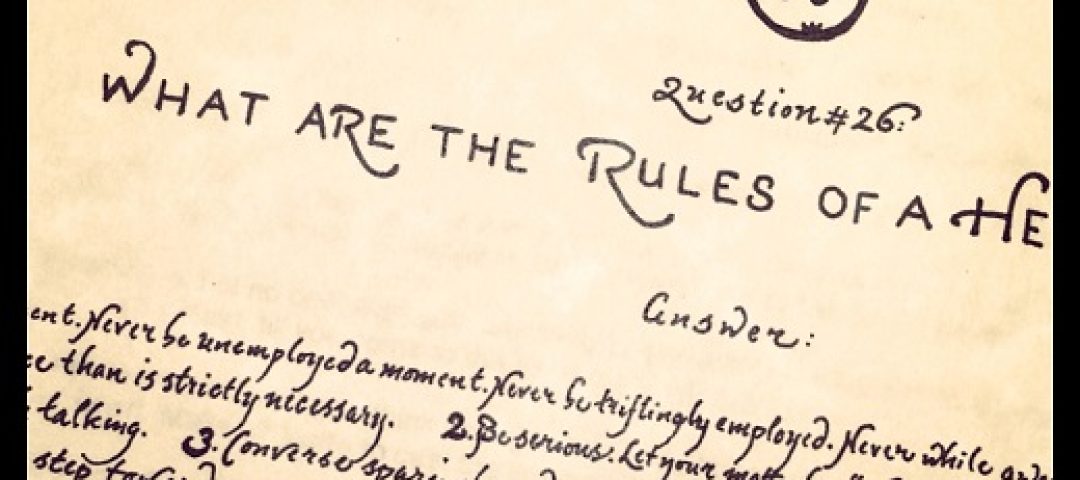 Question #26:
WHAT ARE THE RULES OF A HE
Answer:
ent. Never be unemployed a moment. Never be triflingly employed. Never while
ce than is strictly necessary. 2. Be serious. Let your
talking. 3. Converse
step